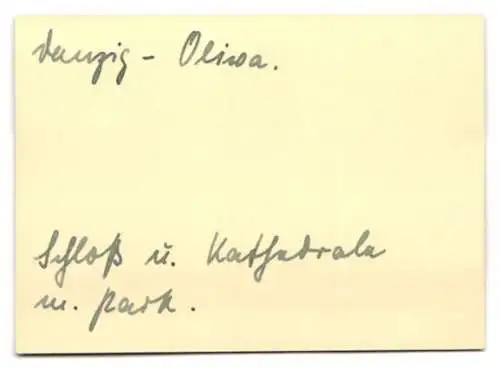 Danzig - Oliwa.
Schloß u. Kathedrale
m. Park.